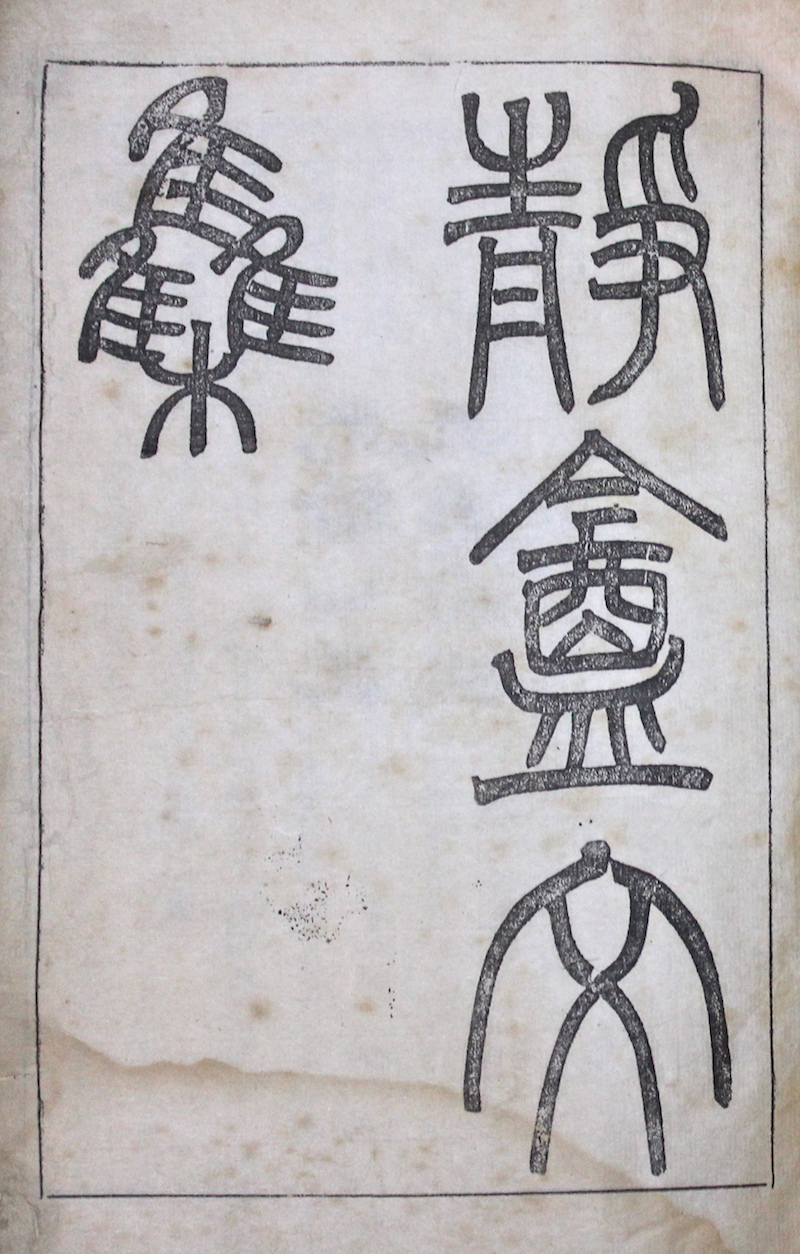 靜盦文
集